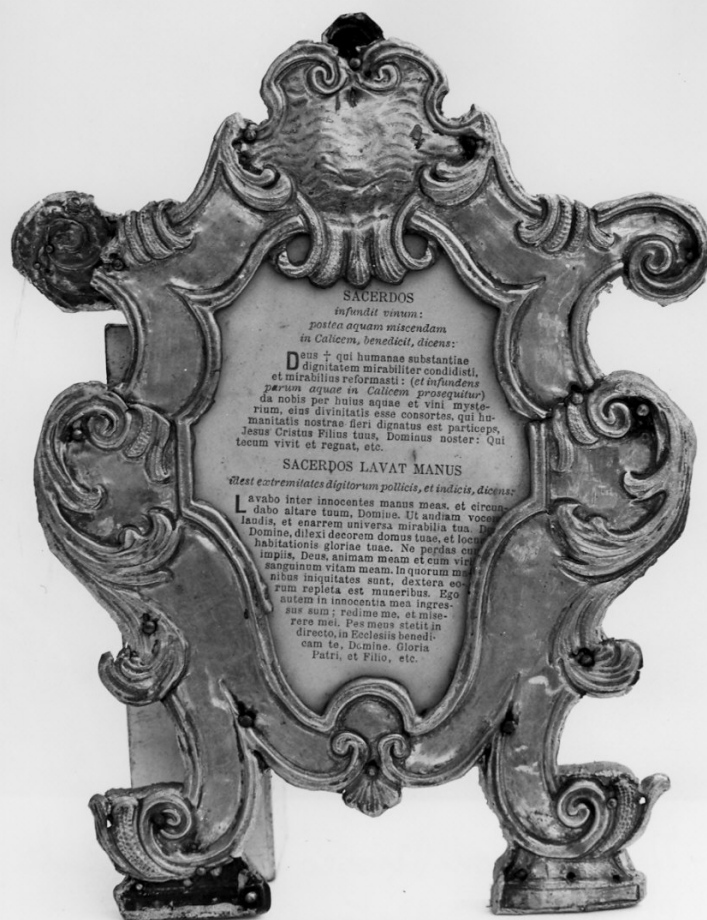 SACERDOS
infundit vinum:
postea aquam miscendam
in Calicem, benedicit, dicens:
Deus † qui humanae substantiae
dignitatem mirabiliter condidisti,
et mirabilius reformasti: (et infundens
parum aquae in Calicem prosequitur)
da nobis per huius aquae et vini myste-
rium, eius divinitatis esse consortes, qui hu-
manitatis nostrae fieri dignatus est particeps,
Jesus Cristus Filius tuus, Dominus noster: Qui
tecum vivit et regnat, etc.
SACERDOS LAVAT MANUS
idest extremitates digitorum pollicis, et indicis, dicens:
Lavabo inter innocentes manus meas, et circun-
dabo altare tuum, Domine. Ut audiam vocem
laudis, et enarrem universa mirabilia tua.
Domine, dilexi decorem domus tuae, et locum
habitationis gloriae tuae. Ne perdas cum
impiis, Deus, animam meam et cum viri
sanguinum vitam meam. In quorum ma-
nibus iniquitates sunt, dextera eo-
rum repleta est muneribus. Ego
autem in innocentia mea ingres-
sus sum; redime me, et mise-
rere mei. Pes meus stetit in
directo, in Ecclesiis benedi-
cam te, Domine. Gloria
Patri, et Filio, etc.